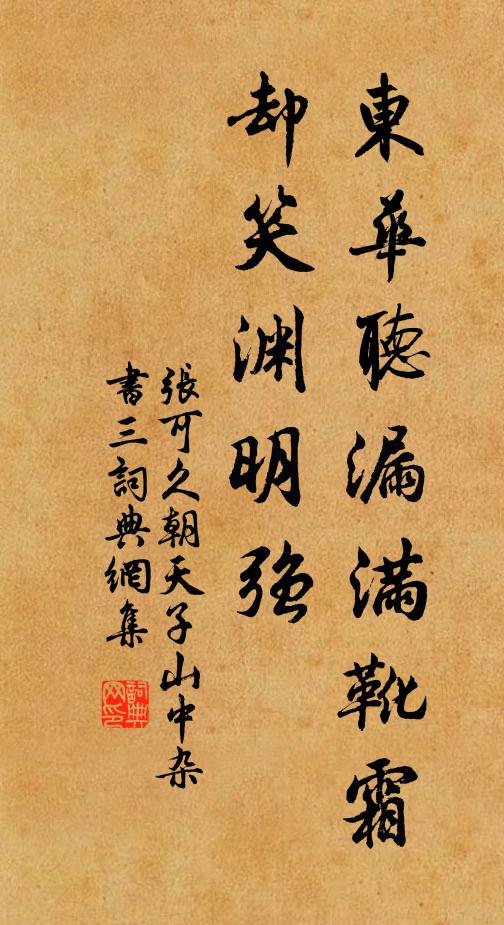 東華聽漏滿靴霜
却笑渊明强
張可久朝天子山中杂
書三詞典網集
詞典网印